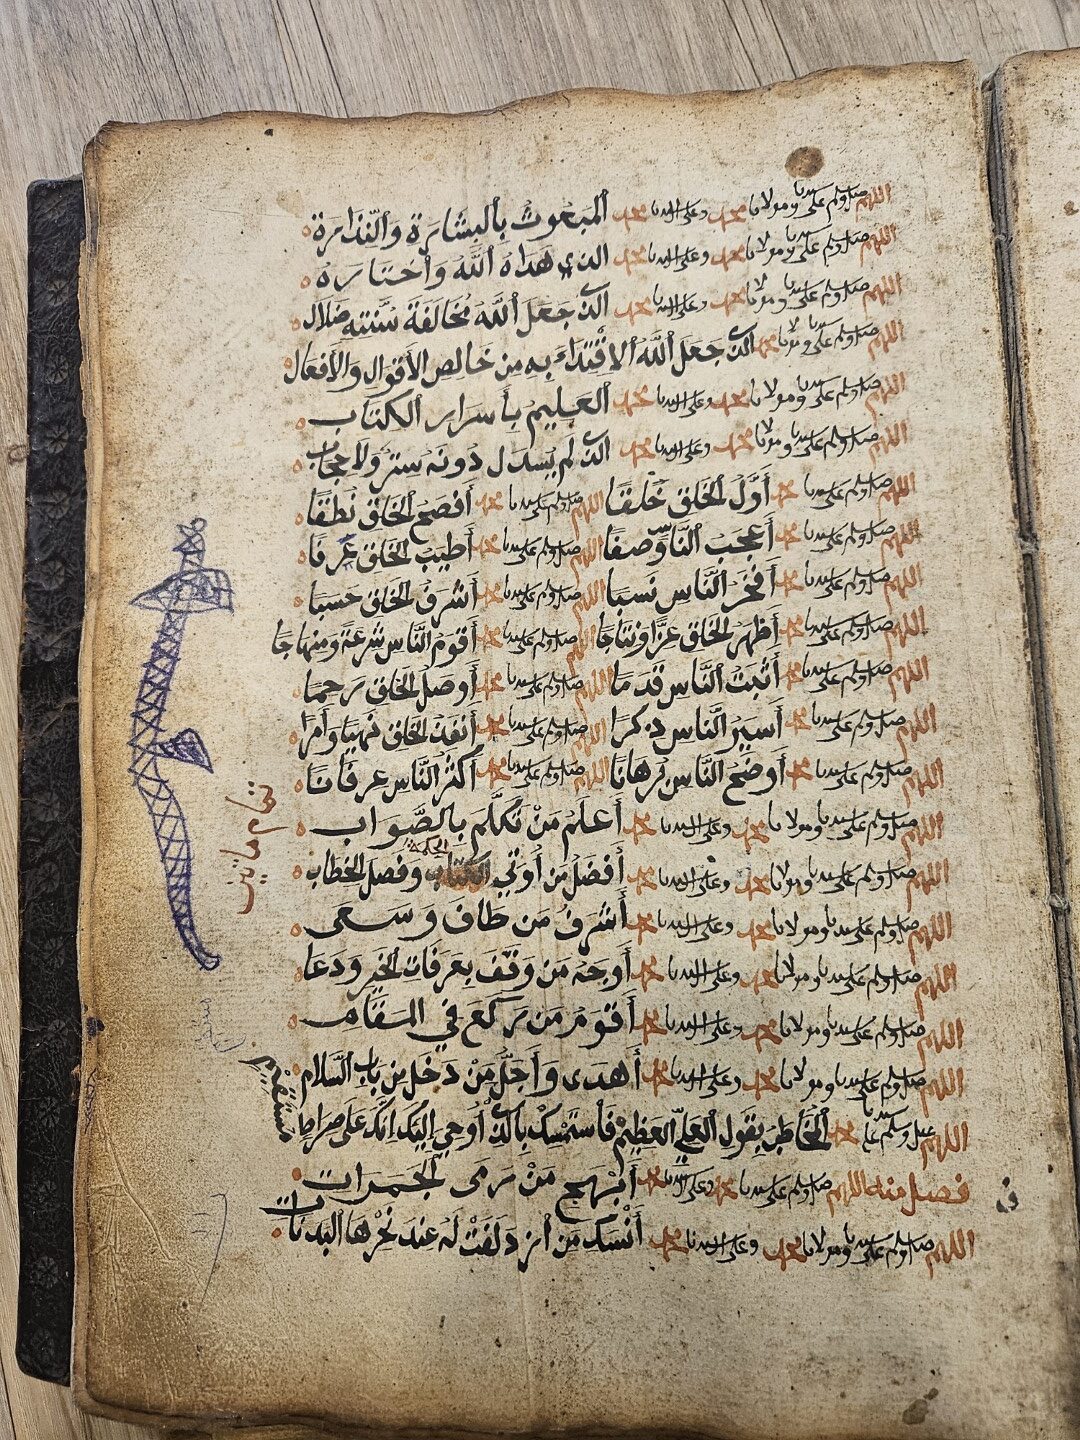 اللهم صل وسلم على سيدنا ومولانا محمد وعلى ال سيدنا محمد المبعوث بالبشارة والنذارة
اللهم صل وسلم على سيدنا ومولانا محمد وعلى ال سيدنا محمد الذي هداه الله واختاره
اللهم صل وسلم على سيدنا ومولانا محمد وعلى ال سيدنا محمد الذى جعل الله مخالفة سنته ضلال
اللهم صل وسلم على سيدنا ومولانا محمد الذى جعل الله الاقتداء به من خالص الأقوال والأفعال
اللهم صل وسلم على سيدنا ومولانا محمد وعلى ال سيدنا محمد العليم بأسرار الكتاب
اللهم صل وسلم على سيدنا ومولانا محمد وعلى ال سيدنا محمد الذى لم يسدل دونه ستر ولا حجاب
اللهم صل وسلم على سيدنا محمد أول الخلق خلقا اللهم صل وسلم على سيدنا محمد أفصح الخلق نطقا
اللهم صل وسلم على سيدنا محمد أعجب الناس وصفا اللهم صل وسلم على سيدنا محمد أطيب الخلق عرفا
اللهم صل وسلم على سيدنا محمد أفخر الناس نسبا اللهم صل وسلم على سيدنا محمد أشرف الخلق حسبا
اللهم صل وسلم على سيدنا محمد أظهر الخلق عزا وتاجا اللهم صل وسلم على سيدنا محمد أقوم الناس شرعة ومنهاجا
اللهم صل وسلم على سيدنا محمد أثبت الناس قدما اللهم صل وسلم على سيدنا محمد أوصل الخلق رحما
اللهم صل وسلم على سيدنا محمد أسير الناس ذكرا اللهم صل وسلم على سيدنا محمد أنفذ الخلق نهيا وأمرا
اللهم صل وسلم على سيدنا محمد أوضح الناس برهانا اللهم صل وسلم على سيدنا محمد أكثر الناس عرفانا
اللهم صل وسلم على سيدنا ومولانا محمد وعلى ال سيدنا محمد أعلم من تكلم بالصواب
اللهم صل وسلم على سيدنا ومولانا محمد وعلى ال سيدنا محمد أفضل من أوتي الحكمة وفصل الخطاب
اللهم صل وسلم على سيدنا ومولانا محمد وعلى ال سيدنا محمد أشرف من طاف وسعى
اللهم صل وسلم على سيدنا ومولانا محمد وعلى ال سيدنا محمد أوجه من وقف بعرفات الخير ودعا
اللهم صل وسلم على سيدنا ومولانا محمد وعلى ال سيدنا محمد أقوم من ركع في المقام
اللهم صل وسلم على سيدنا ومولانا محمد وعلى ال سيدنا محمد أهدى وأجل من دخل من باب السلام
اللهم صل وسلم على سيدنا محمد المخاطب بقول العلي العظيم فاستمسك بالذى أوحي إليك إنك على صراط
مستقيم
فصل منه اللهم صل وسلم على سيدنا محمد وعلى ال سيدنا محمد أبهج من رمى الجمرات
اللهم صل وسلم على سيدنا ومولانا محمد وعلى ال سيدنا محمد أنسك من ازدلفت له عند نحرها البدنات